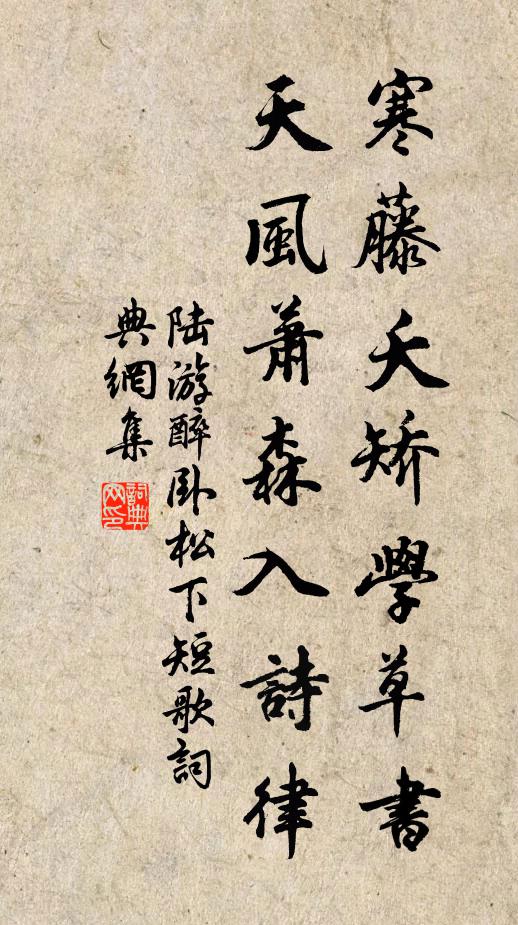 寒藤夭矯學草書
天風蕭森入詩律
陆游醉卧松下短歌詞
典網集
詞典網印